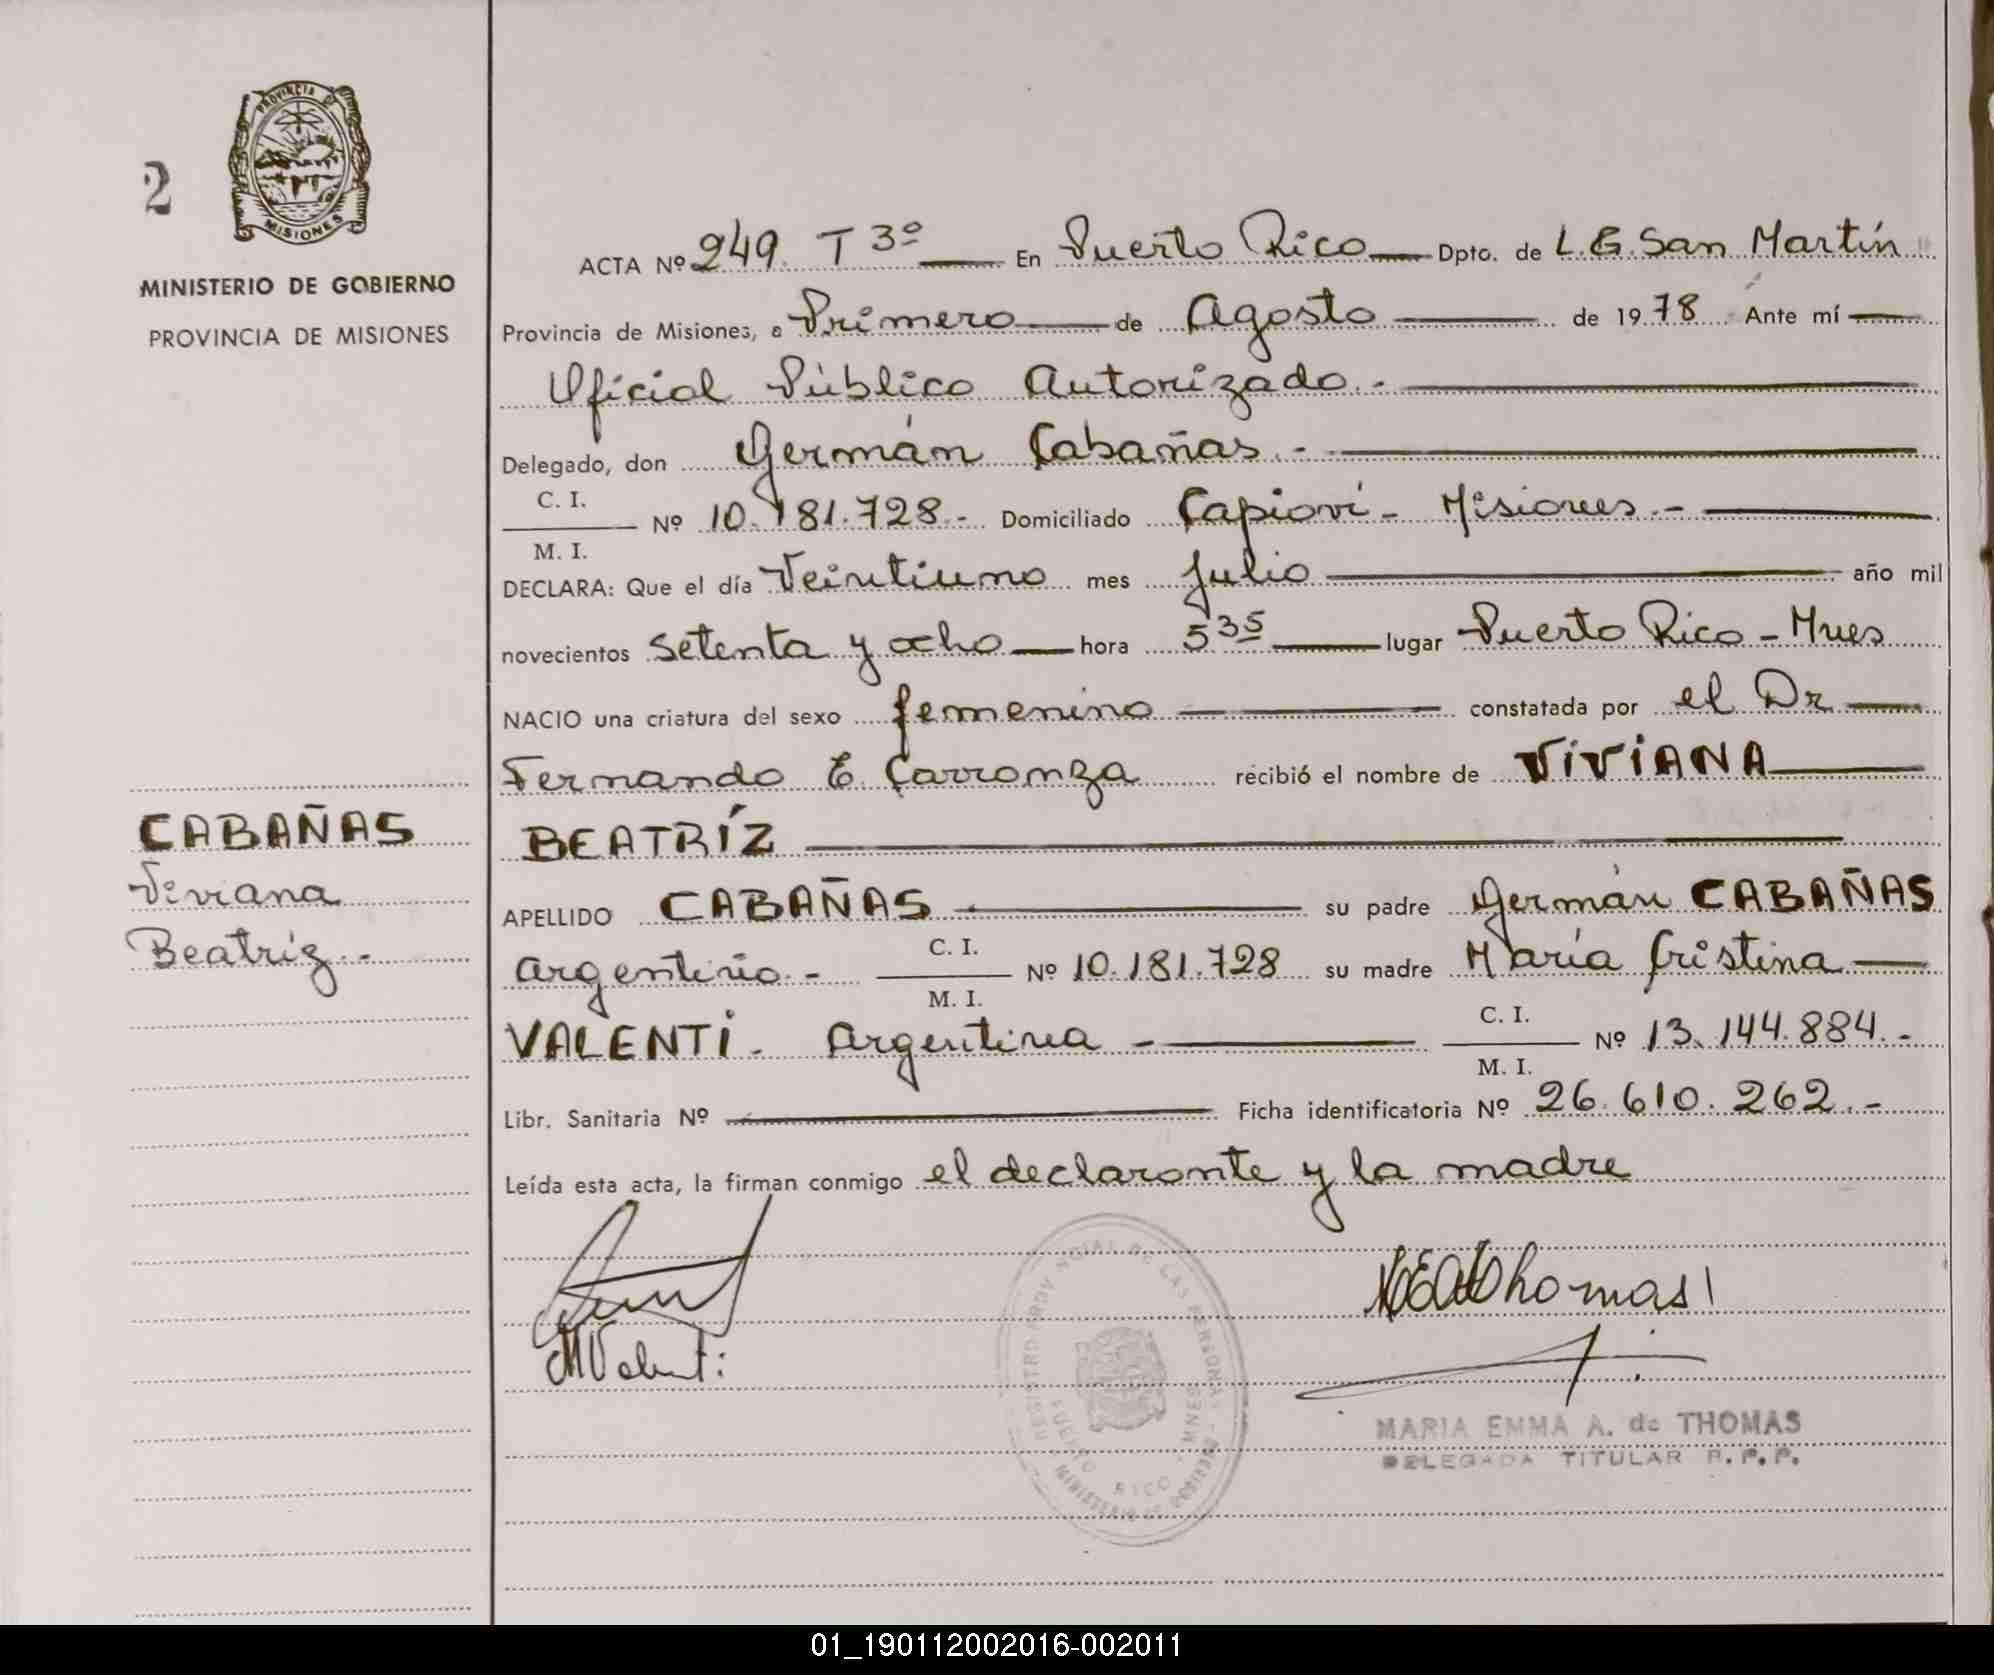 2
PROVINCIA DE
MISIONES
MINISTERIO DE GOBIERNO
PROVINCIA DE MISIONES
ACTA Nº 249. T 3º En Puerto Rico Dpto. de L.G. San Martín
Provincia de Misiones, a Primero de Agosto de 1978 Ante mí
Oficial Público Autorizado.-
Delegado, don Germán Cabañas.-
C. I.
Nº 10.181.728.- Domiciliado Capioví - Misiones.-
M. I.
DECLARA: Que el día Veintiuno mes Julio año mil
novecientos setenta y ocho hora 5 35 lugar Puerto Rico - Mnes
NACIO una criatura del sexo femenino constatada por el Dr
Fernando E. Carronza recibió el nombre de VIVIANA
BEATRÍZ
CABAÑAS
Viviana
Beatriz.-
APELLIDO CABAÑAS su padre Germán CABAÑAS
argentino.- C. I. Nº 10.181.728 su madre María Cristina
M. I.
VALENTI. Argentina - C. I. Nº 13.144.884.-
M. I.
Libr. Sanitaria Nº Ficha identificatoria Nº 26.610.262.-
Leída esta acta, la firman conmigo el declaronte y la madre
MValenti
Thomas
REGISTRO PROVINCIAL DE LAS PERSONAS
PUERTO RICO - MNES
MINISTERIO DE GOBIERNO
MARIA EMMA A. de THOMAS
DELEGADA TITULAR R.P.P.
01_190112002016-002011